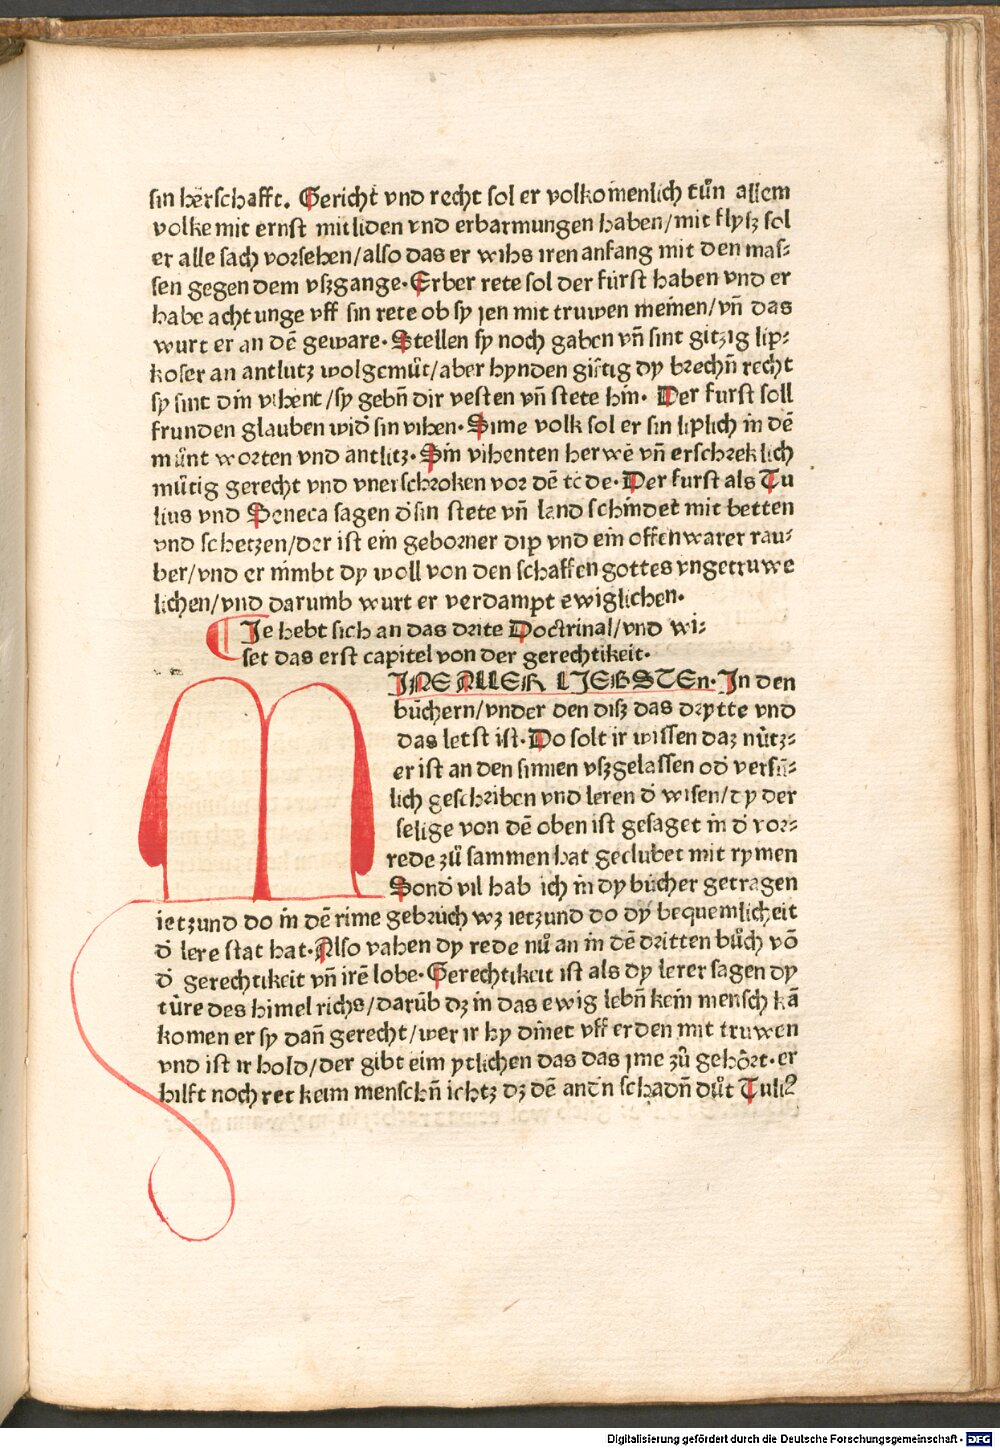 sin herschafft. Gericht vnd recht sol er volkom̄enlich tůn allem
volke mit ernst mitliden vnd erbarmungen haben/mit flysz sol
er alle sach vorsehen/also das er wihs iren anfang mit den mas⸗
sen gegen dem vszgange. Erber rete sol der fürst haben vnd er
habe achtunge vff sin rete ob sy jen mit truwen meinen/vn̄ das
wurt er an dē geware. Stellen sy noch gaben vn̄ sint gitzig lip⸗
koser an antlutz wolgemüt/aber hynden giftig dy brechn̄ recht
sy sint din vihent/sy gebn̄ dir vesten vn̄ stete hin. Der furst soll
frunden glauben wid̄ sin vihen. Sime volk sol er sin liplich in dē
münt worten vnd antlitz. Sin vihenten herwē vn̄ erschreklich
mütig gerecht vnd vnerschroken vor dē tode. Der furst als Tu
lius vnd Seneca sagen d̄ sin stete vn̄ land schindet mit betten
vnd schetzen/der ist ein geborner dip vnd ein offenwarer rau⸗
ber/vnd er nimbt dy woll von den schaffen gottes vngetruwe
lichen/vnd darumb wurt er verdampt ewiglichen.
Je hebt sich an das drite Doctrinal/vnd wi⸗
set das erst capitel von der gerechtikeit.
MJNE ALLER LJEBSTEn. Jn den
büchern/vnder den disz das drytte vnd
das letst ist. Do solt ir wissen daz nütz⸗
er ist an den sinnen vszgelassen od̄ versü⸗
lich geschriben vnd leren d̄ wisen/dy der
selige von dē oben ist gesaget in d̄ vor⸗
rede zů sammen hat geclubet mit rymen
Sond̄ vil hab ich in dy bücher getragen
ietzund do in dē rime gebruch wz ietzund do dy bequemlicheit
d̄ lere stat hat. Also vahen dy rede nů an in dē dritten bůch vō
d̄ gerechtikeit vn̄ irē lobe. Gerechtikeit ist als dy lerer sagen dy
türe des himelrichs/darūb dz in das ewig lebn̄ kein mensch kā
komen er sy dan̄ gerecht/wer ir hy dinet vff erden mit truwen
vnd ist ir hold/der gibt eim ytlichen das das jme zů gehört. er
hilft noch ret keim menschn̄ ichtz dz dē andn̄ schadn̄ důt Tuli⁹
Digitalisierung gefördert durch die Deutsche Forschungsgemeinschaft - DFG